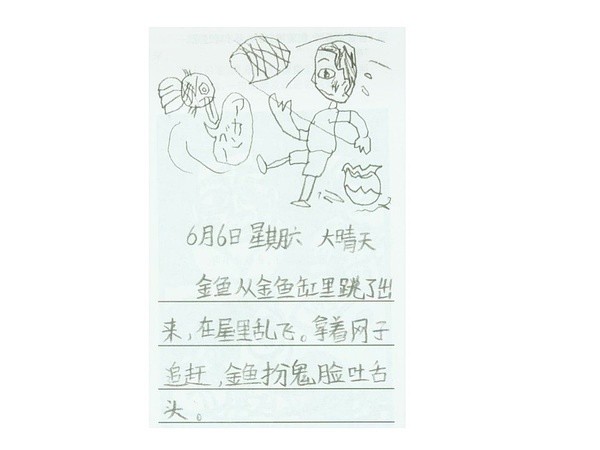 アカンベー
6月6日 星期六 大晴天
金鱼从金鱼缸里跳了出
来,在屋里乱飞。拿着网子
追赶,金鱼扮鬼脸吐舌
头。